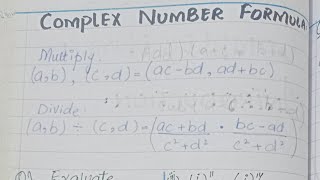 COMPLEX NUMBER FORMULA
Multiply:
(a,b) , (c,d) = (ac-bd , ad+bc)
Divide:
(a,b) ÷ (c,d) = (ac+bd/c²+d² , bc-ad/c²+d²)
Evaluate